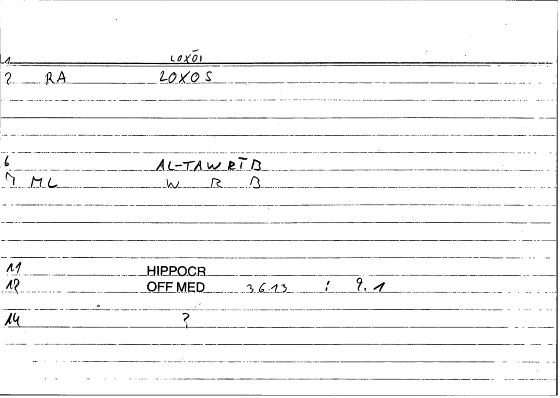 1 LOXOĪ
2 RA LOXOS
6 AL-TAWRĪB
7 ML W R B
11 HIPPOCR
12 OFF MED 3613 : 9.1
14 ?